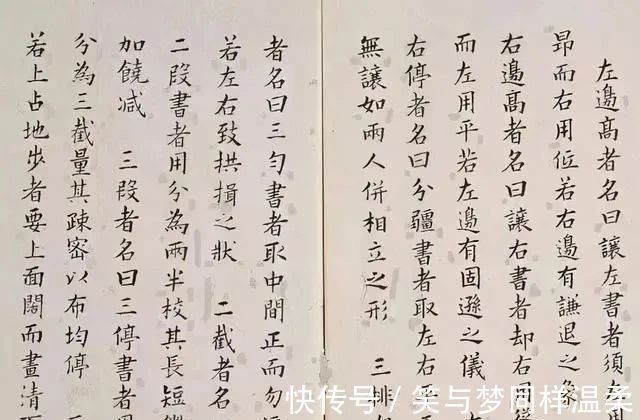 左邊髙者名曰讓左書者須左
昂而右用低若右邊有謙退之象
右邊髙者名曰讓右書者却右
而左用平若左邊有固遜之儀
右停者名曰分疆書者取左右平
無讓如兩人併相立之形 三排
者名曰三勻書者取中間正而勿
若左右致拱揖之狀 二截者名
二段書者用分為兩半校其長短
加饒减 三段者名曰三停書者
分為三截量其踈密以布均停
若上占地步者要上面闊而畫清
快传号 / 笑与梦同样温柔